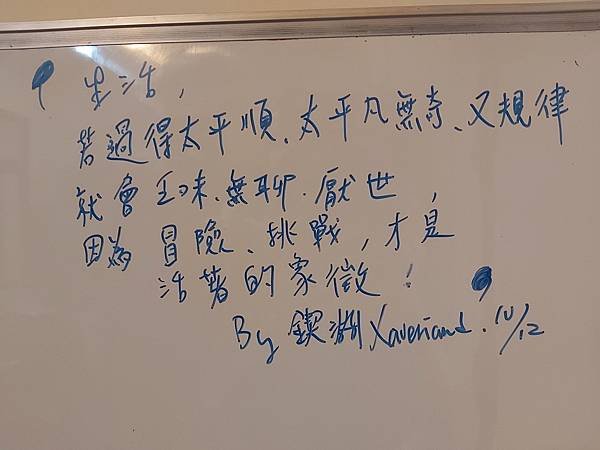 生活,
若過得太平順、太平凡無奇、又規律
就會乏味、無聊、厭世,
因為冒險、挑戰,才是
活著的象徵!
By 鍥 10/12